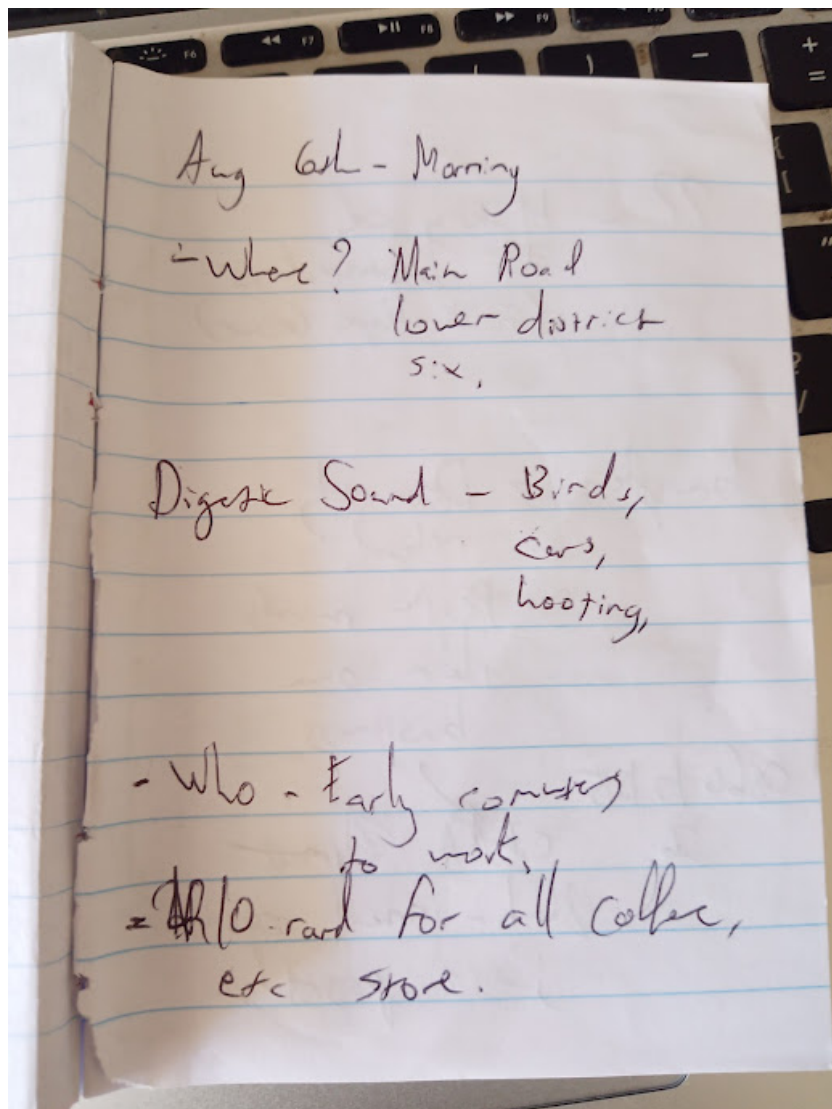 Aug 6th - Morning
- Where? Main Road
lower district
six.
Digetic Sound - Birds,
cars,
hooting,
- Who - Early commuters
to work.
- R10 rand for all coffee,
etc store.